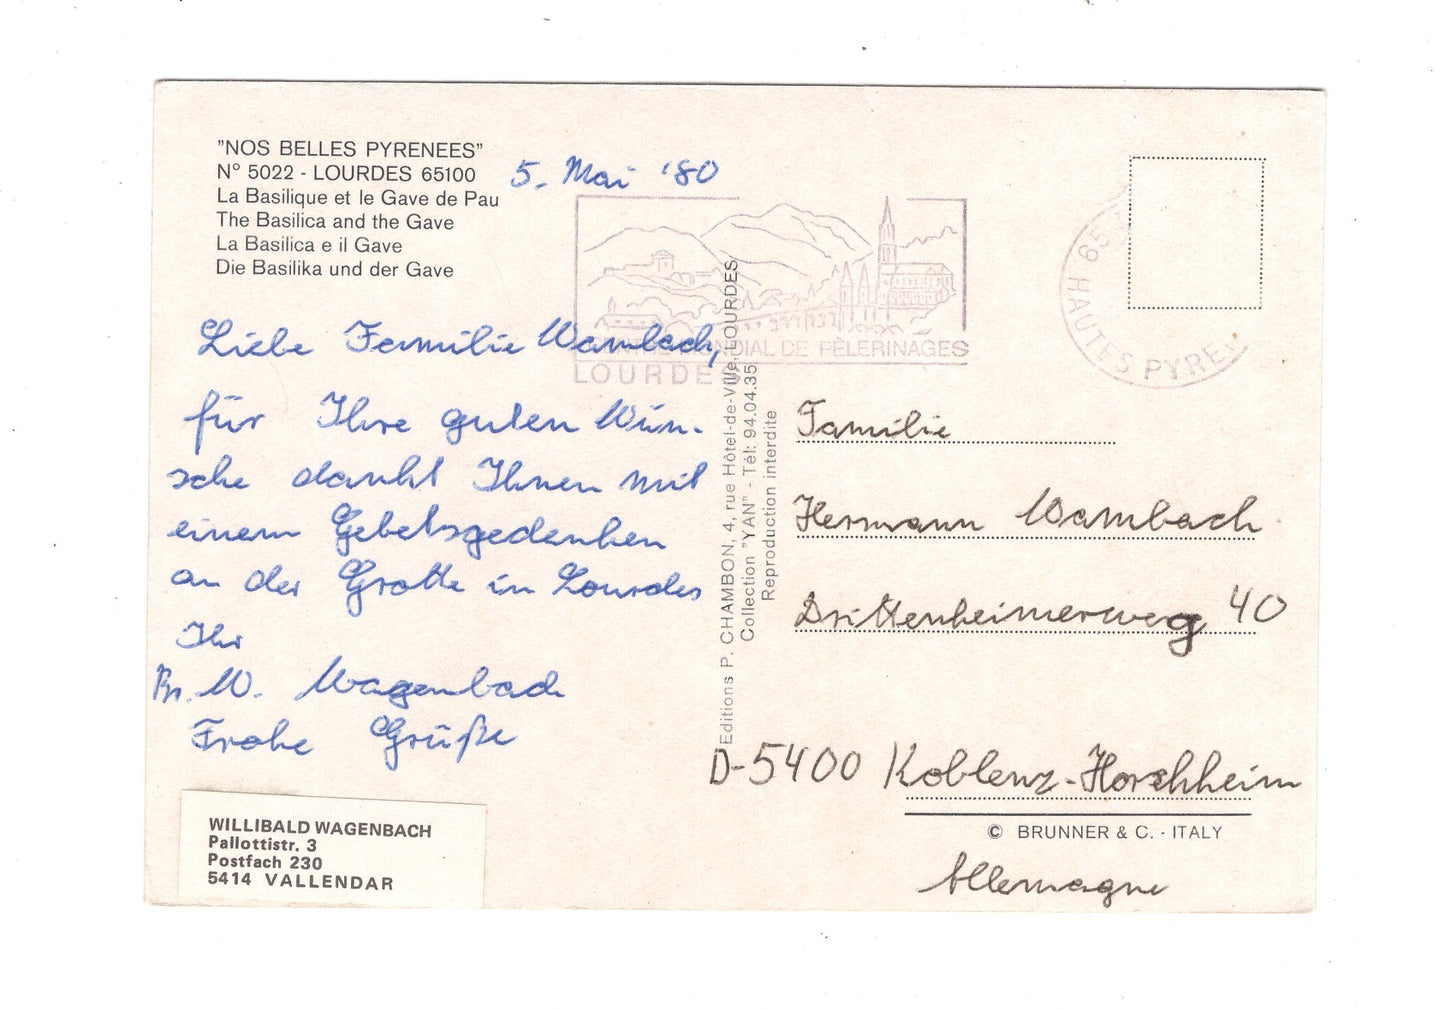 "NOS BELLES PYRENEES"
N° 5022 - LOURDES 65100
La Basilique et le Gave de Pau
The Basilica and the Gave
La Basilica e il Gave
Die Basilika und der Gave
5. Mai '80
Liebe Familie Wambach,
für Ihre guten Wün-
sche dankt Ihnen mit
einem Gebetsgedenken
an der Grotte in Lourdes
Ihr
Br. W. Wagenbach
Frohe Grüße
WILLIBALD WAGENBACH
Pallottistr. 3
Postfach 230
5414 VALLENDAR
CENTRE MONDIAL DE PÈLERINAGES
LOURDES
65
HAUTES PYRE
Editions P. CHAMBON, 4, rue Hôtel-de-Ville, LOURDES
Collection "YAN" - Tél: 94.04.35
Reproduction interdite
Familie
Hermann Wambach
Drittenheimerweg 40
D-5400 Koblenz-Horchheim
© BRUNNER & C. - ITALY
Allemagne